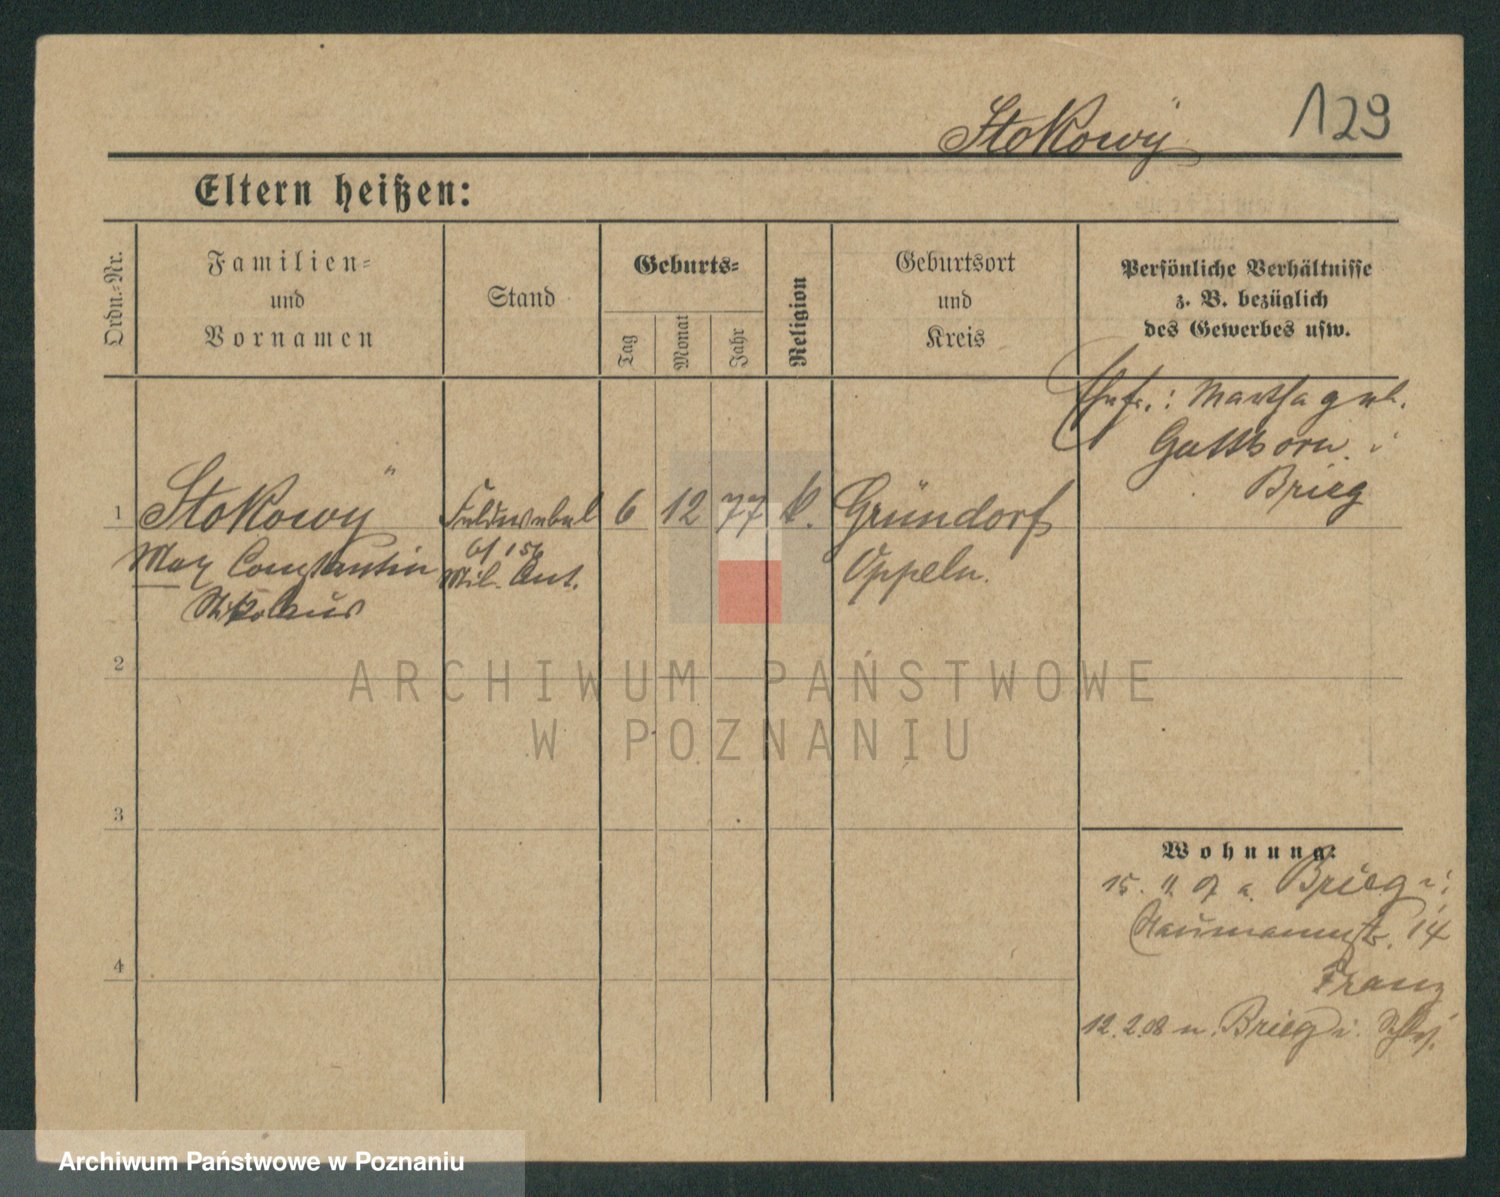 Stokowÿ 129
Eltern heißen:
Ordn.-Nr.
Familien-
und
Vornamen
Stand
Geburts-
Tag
Monat
Jahr
Religion
Geburtsort
und
Kreis
Persönliche Verhältnisse
z. B. bezüglich
des Gewerbes usw.
Ehefr.: Martha geb.
Brieg
1 Stokowÿ Feldwebel 6 12 77 k. Gründorf
Max Constantin Oppeln.
Nikolaus
2
3
4
Wohnung:
15. 11. 07 a. Brieg
Naumannstr. 14
Franz
12. 2. 08 n. Brieg i. Schles.
ARCHIWUM PAŃSTWOWE
W POZNANIU
Archiwum Państwowe w Poznaniu